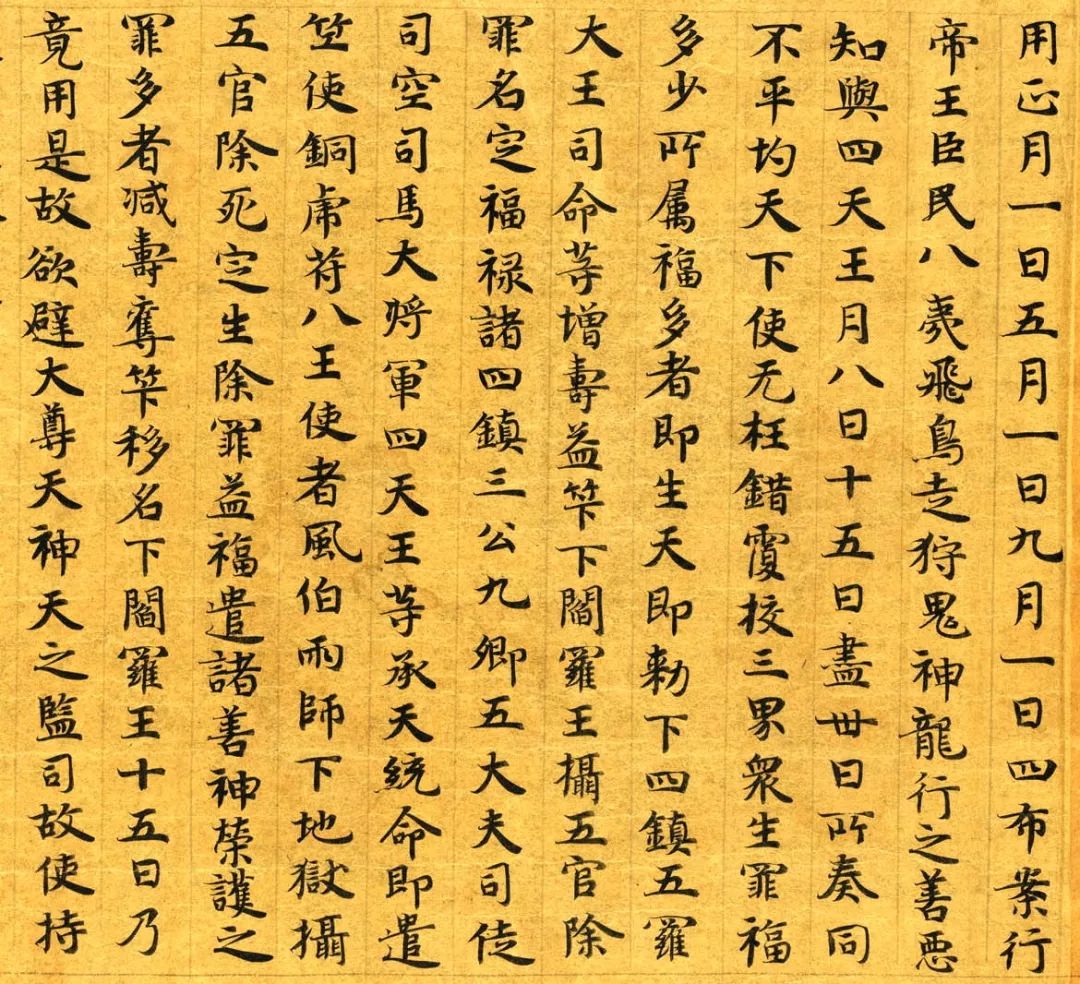 用正月一日五月一日九月一日四布案行
帝王臣民八夷飛鳥走狩鬼神龍行之善惡
知與四天王月八日十五日盡卅日所奏同
不平均天下使无枉錯覆校三界衆生罪福
多少所属福多者即生天即勑下四鎮五羅
大王司命等增壽益竿下閻羅王攝五官除
罪名定福禄諸四鎮三公九卿五大夫司徒
司空司馬大將軍四天王等承天統命即遣
竺使銅虎符八王使者風伯雨師下地獄攝
五官除死定生除罪益福遣諸善神榮護之
罪多者减壽奪竿移名下閻羅王十五日乃
竟用是故欲避大尊天神天之監司故使持